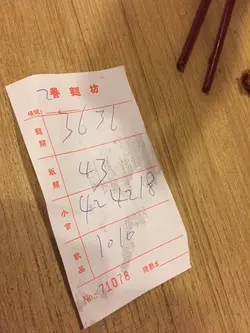 魯麵坊
2
麵類 3636
飯類 43
小食 42 4218
飲品 1010
No. 71078 總數$